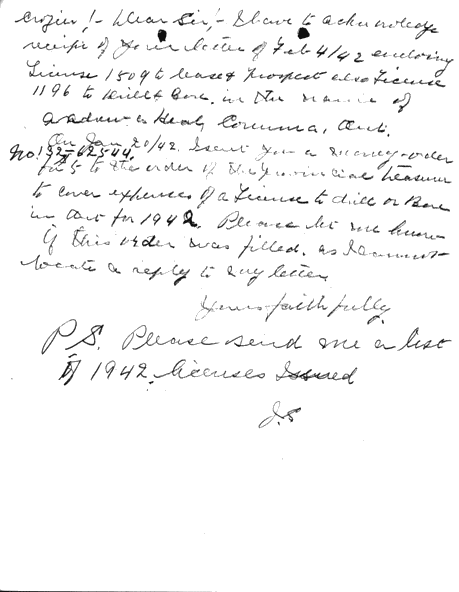 Crozier!- Dear Sir,- I have to acknowledge
receipt of your letter of Feb 4/42 enclosing
License 1509 to lease & Prospect also License
1196 to Drill & Bore. in the name of
Corunna, Ont.
On Jan 20/42. I sent you a money-order
No! 92-62544.
for 5 to the order of the Provincial Treasurer
to cover expenses of a License to drill or Bore
in Ont for 1942. Please let me know
if this order was filled. as I cannot
locate a reply to my letter
Yours faithfully.
P.S. Please send me a list
of 1942. licenses Issued
J.S